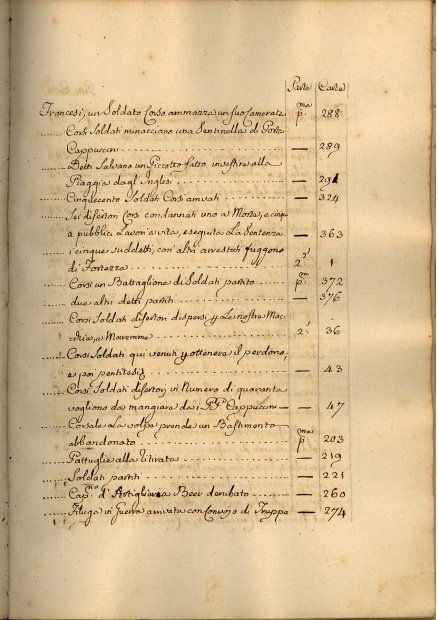 Parte Carte
Francesi, un Soldato Corso ammazza un suo Camerata pma 288
...... Corsi Soldati minacciano una Sentinella di Porta
Cappuccini — 289
...... Detti Salvano un Piccolo fatto investire alla
Piaggia dagl'Inglesi — 291
...... Cinquecento Soldati Corsi arrivati — 324
...... Sei disertori Corsi condannati uno a Morte, e cinq
a pubblici Lavori a vita, e seguita La Sentenza — 363
...... i cinque suddetti, con altri arrestati fuggono
di Fortezza 2a 1
...... Corsi un Battaglione di Soldati partito pma 372
...... due altri detti partiti — 376
...... Corsi Soldati disertori dispersi p Le nostre Mac
chie, e Maremme 2a 36
...... Corsi Soldati qui venuti p ottenere il perdono,
e poi pentitesi — 43
...... Corsi Soldati disertori in Numero di quaranta
vogliono da mangiare da i PP. Cappuccini — 47
...... Corsale La Volpe prende un Bastimento
abbandonato pma 203
...... Pattuglie alla ritirata — 219
...... Soldati partiti — 221
...... Capno d'Artiglieria Beer derubato — 260
...... Filuga in Guerra arrivata con Convojo di Truppa — 274